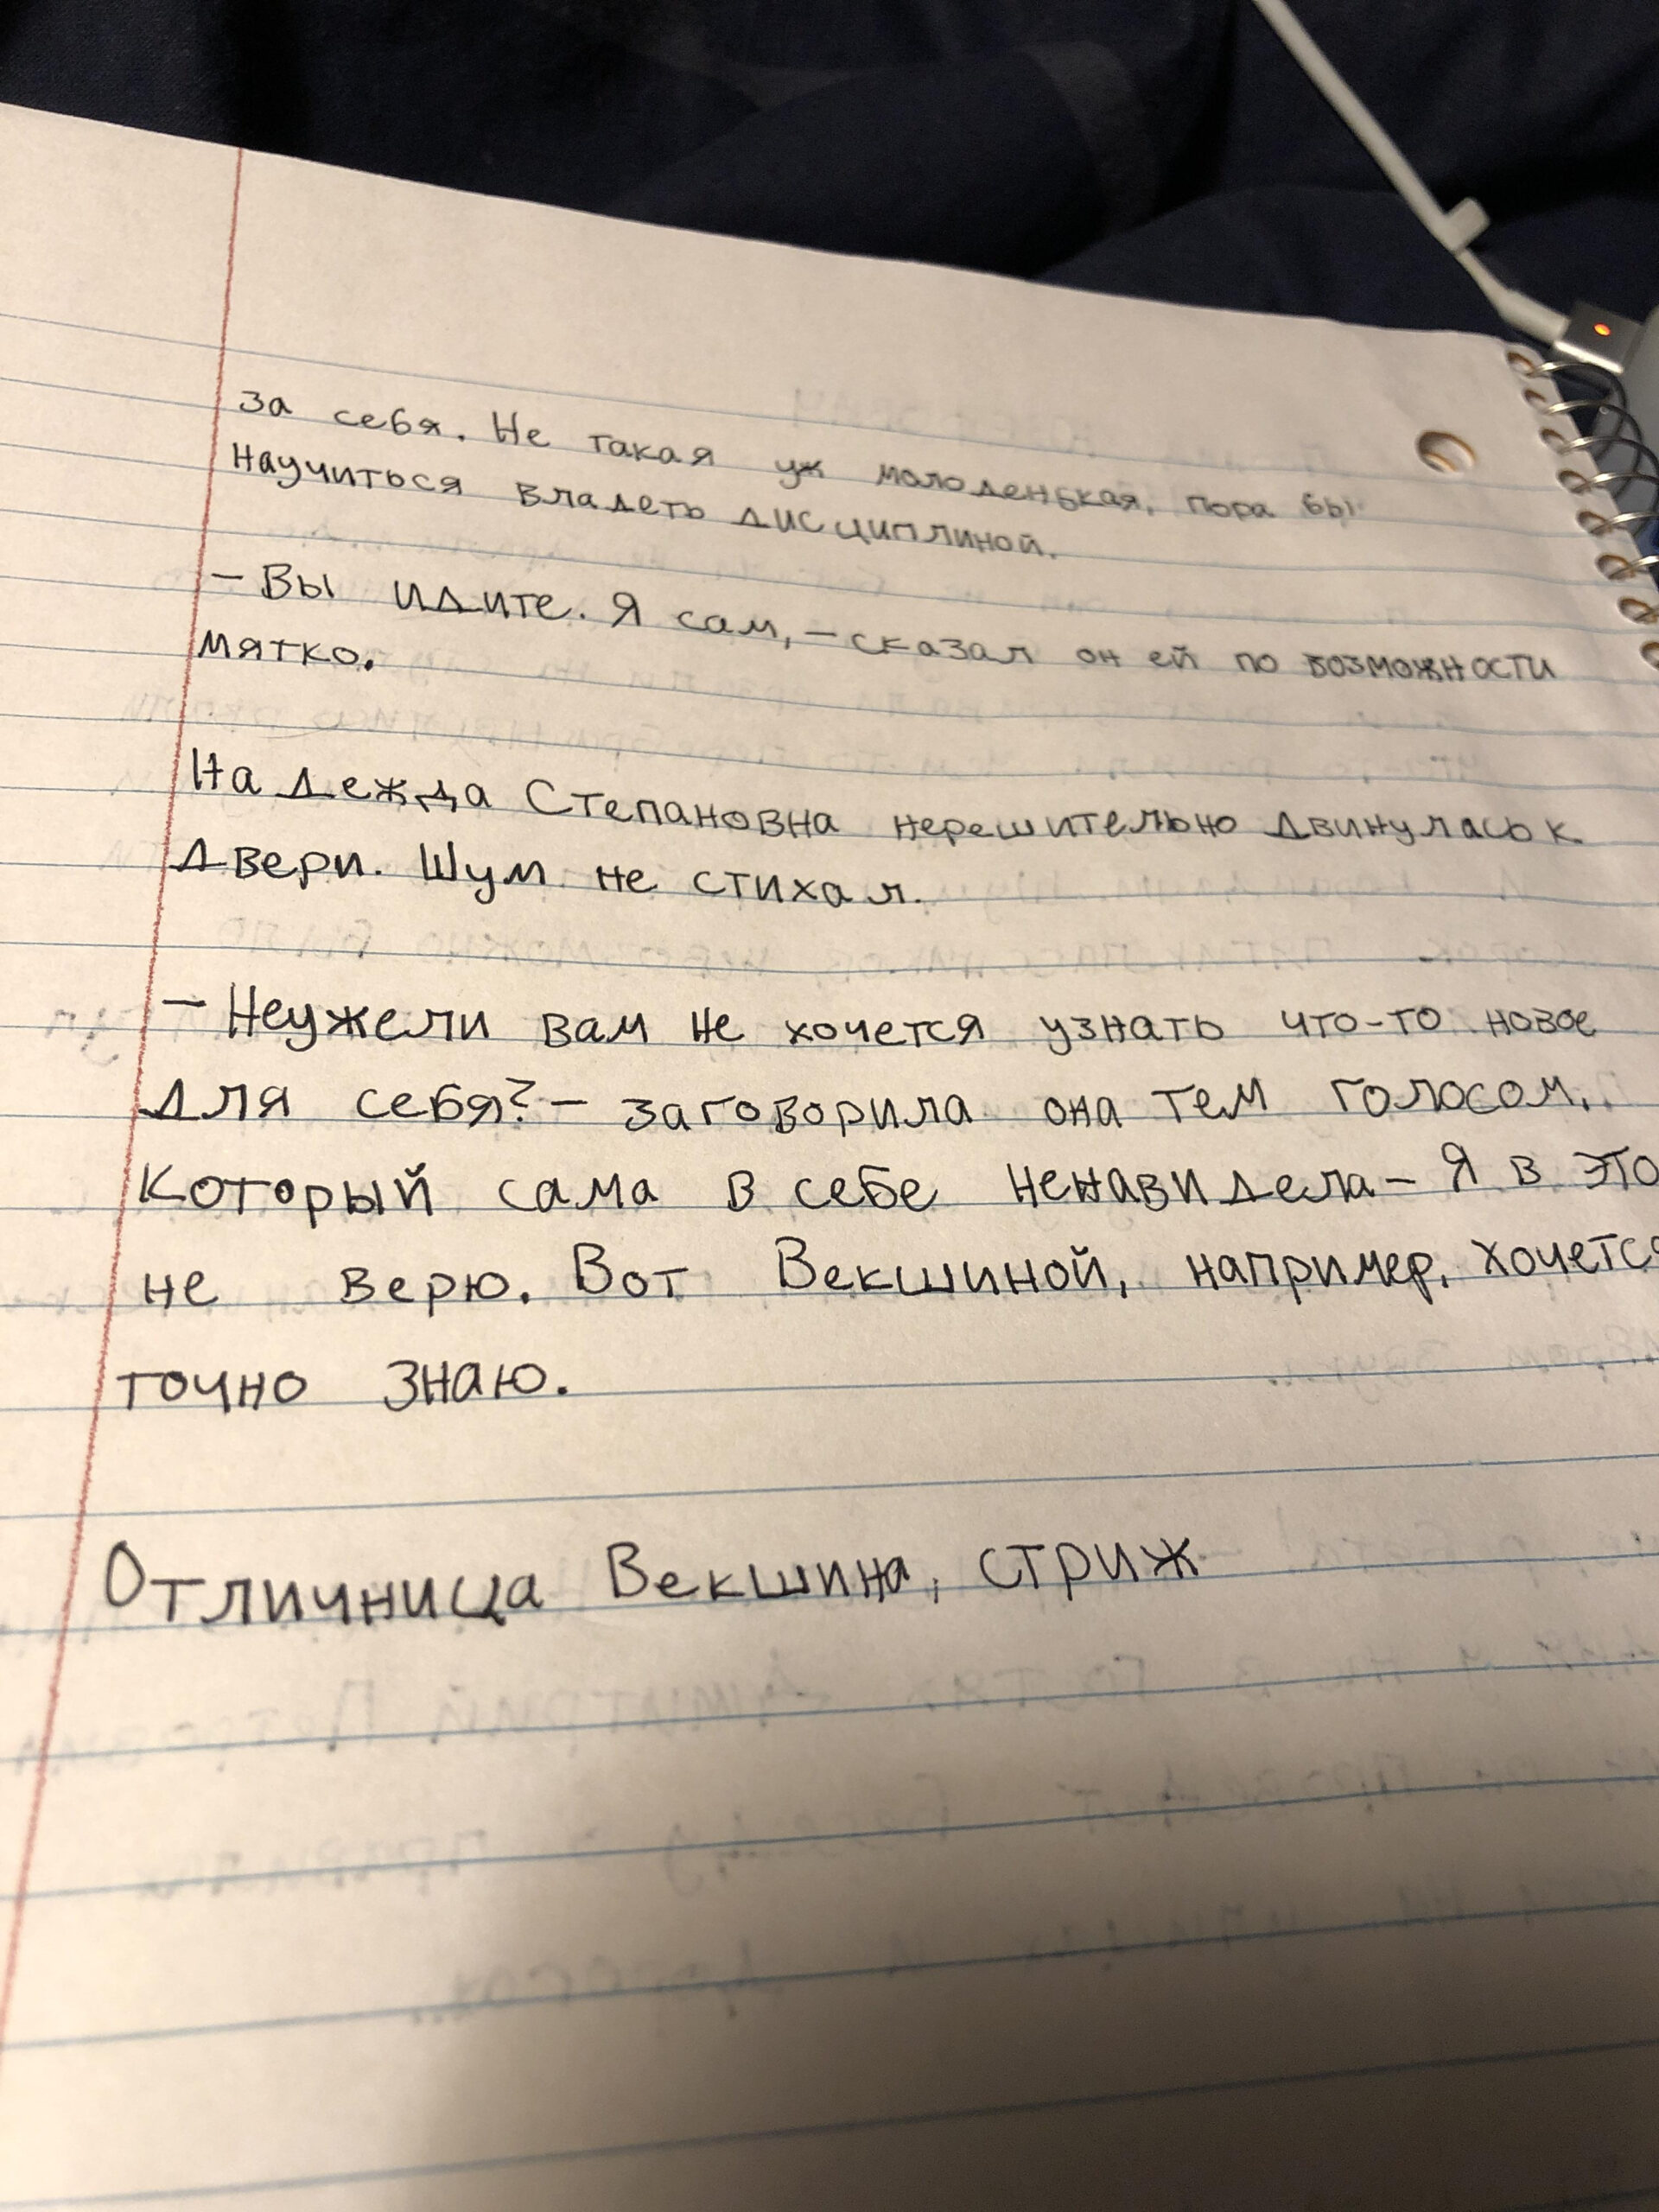 за себя. Не такая уж молоденькая, пора бы
научиться владеть дисциплиной.
– Вы идите. Я сам, – сказал он ей по возможности
мятко.
Надежда Степановна нерешительно двинулась к
двери. Шум не стихал.
– Неужели вам не хочется узнать что-то новое
для себя? – заговорила она тем голосом,
который сама в себе ненавидела – Я в это
не верю. Вот Векшиной, например, хочется
точно знаю.
Отличница Векшина, стриж